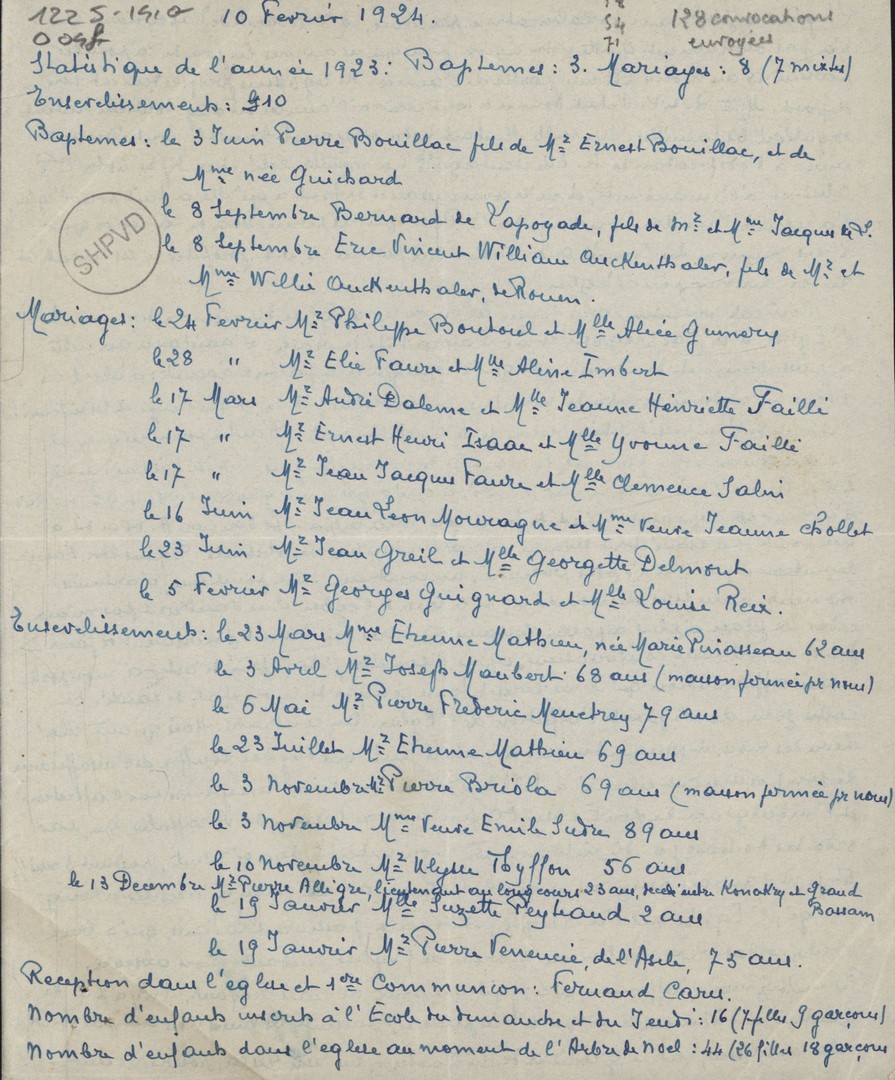 1225-1910
10 Fevrier 1924.
54
71
128 convocations
envoyées
Statistique de l'année 1923: Baptemes: 3. Mariages: 8 (7 mixtes)
Ensevelissements: 10
Baptemes: le 3 Juin Pierre Bouillac fils de Mr Ernest Bouillac, et de
Mme née Guichard
le 8 Septembre Bernard de Lapoyade, fils de Mr et Mme Jacques de L.
le 8 Septembre Eric Vincent William Ouckenthaler, fils de Mr et
Mme Willie Ouckenthaler, de Rouen.
SHPVD
Mariages: le 24 Fevrier Mr Philippe Boutoul et Mlle Alice
le 28 " Mr Elie Faure et Mlle Aline Imbert
le 17 Mars Mr André Daleme et Mlle Jeanne Henriette Failli
le 17 " Mr Ernest Henri Isaac et Mlle Yvonne Failli
le 17 " Mr Jean Jacques Faure et Mlle Clemence Salni
le 16 Juin Mr Jean Leon Mouragne et Mme Veuve Jeanne Chollet
le 23 Juin Mr Jean Greil et Mlle Georgette Delmont
le 5 Fevrier Mr Georges Guignard et Mlle Louise Reix.
Ensevelissements: le 23 Mars Mme Etienne Mathieu, née Marie Piniasseau 62 ans
le 3 Avril Mr Joseph Maubert 68 ans (maison fermée pr nous)
le 6 Mai Mr Pierre Frederic Menetrey 79 ans
le 23 Juillet Mr Etienne Mathieu 69 ans
le 3 Novembre Mr Pierre Briola 69 ans (maison fermée pr nous)
le 3 Novembre Mme Veuve Emile Sudre 89 ans
le 10 Novembre Mr Ulysse Thyffon 56 ans
le 13 Decembre Mr Pierre Allegre, lieutenant au long cours 23 ans, entre Konakry et Grand
Bassam
le 19 Janvier Mlle Suzette Peyhaud 2 ans
le 19 Janvier Mr Pierre Venencie, de l'Asile, 75 ans.
Reception dans l'eglise et 1ere Communion: Fernand Caru.
Nombre d'enfants inscrits à l'Ecole du dimanche et du Jeudi: 16 (7 filles 9 garçons)
Nombre d'enfants dans l'eglise au moment de l'Arbre de Noel: 44 (26 filles 18 garçons